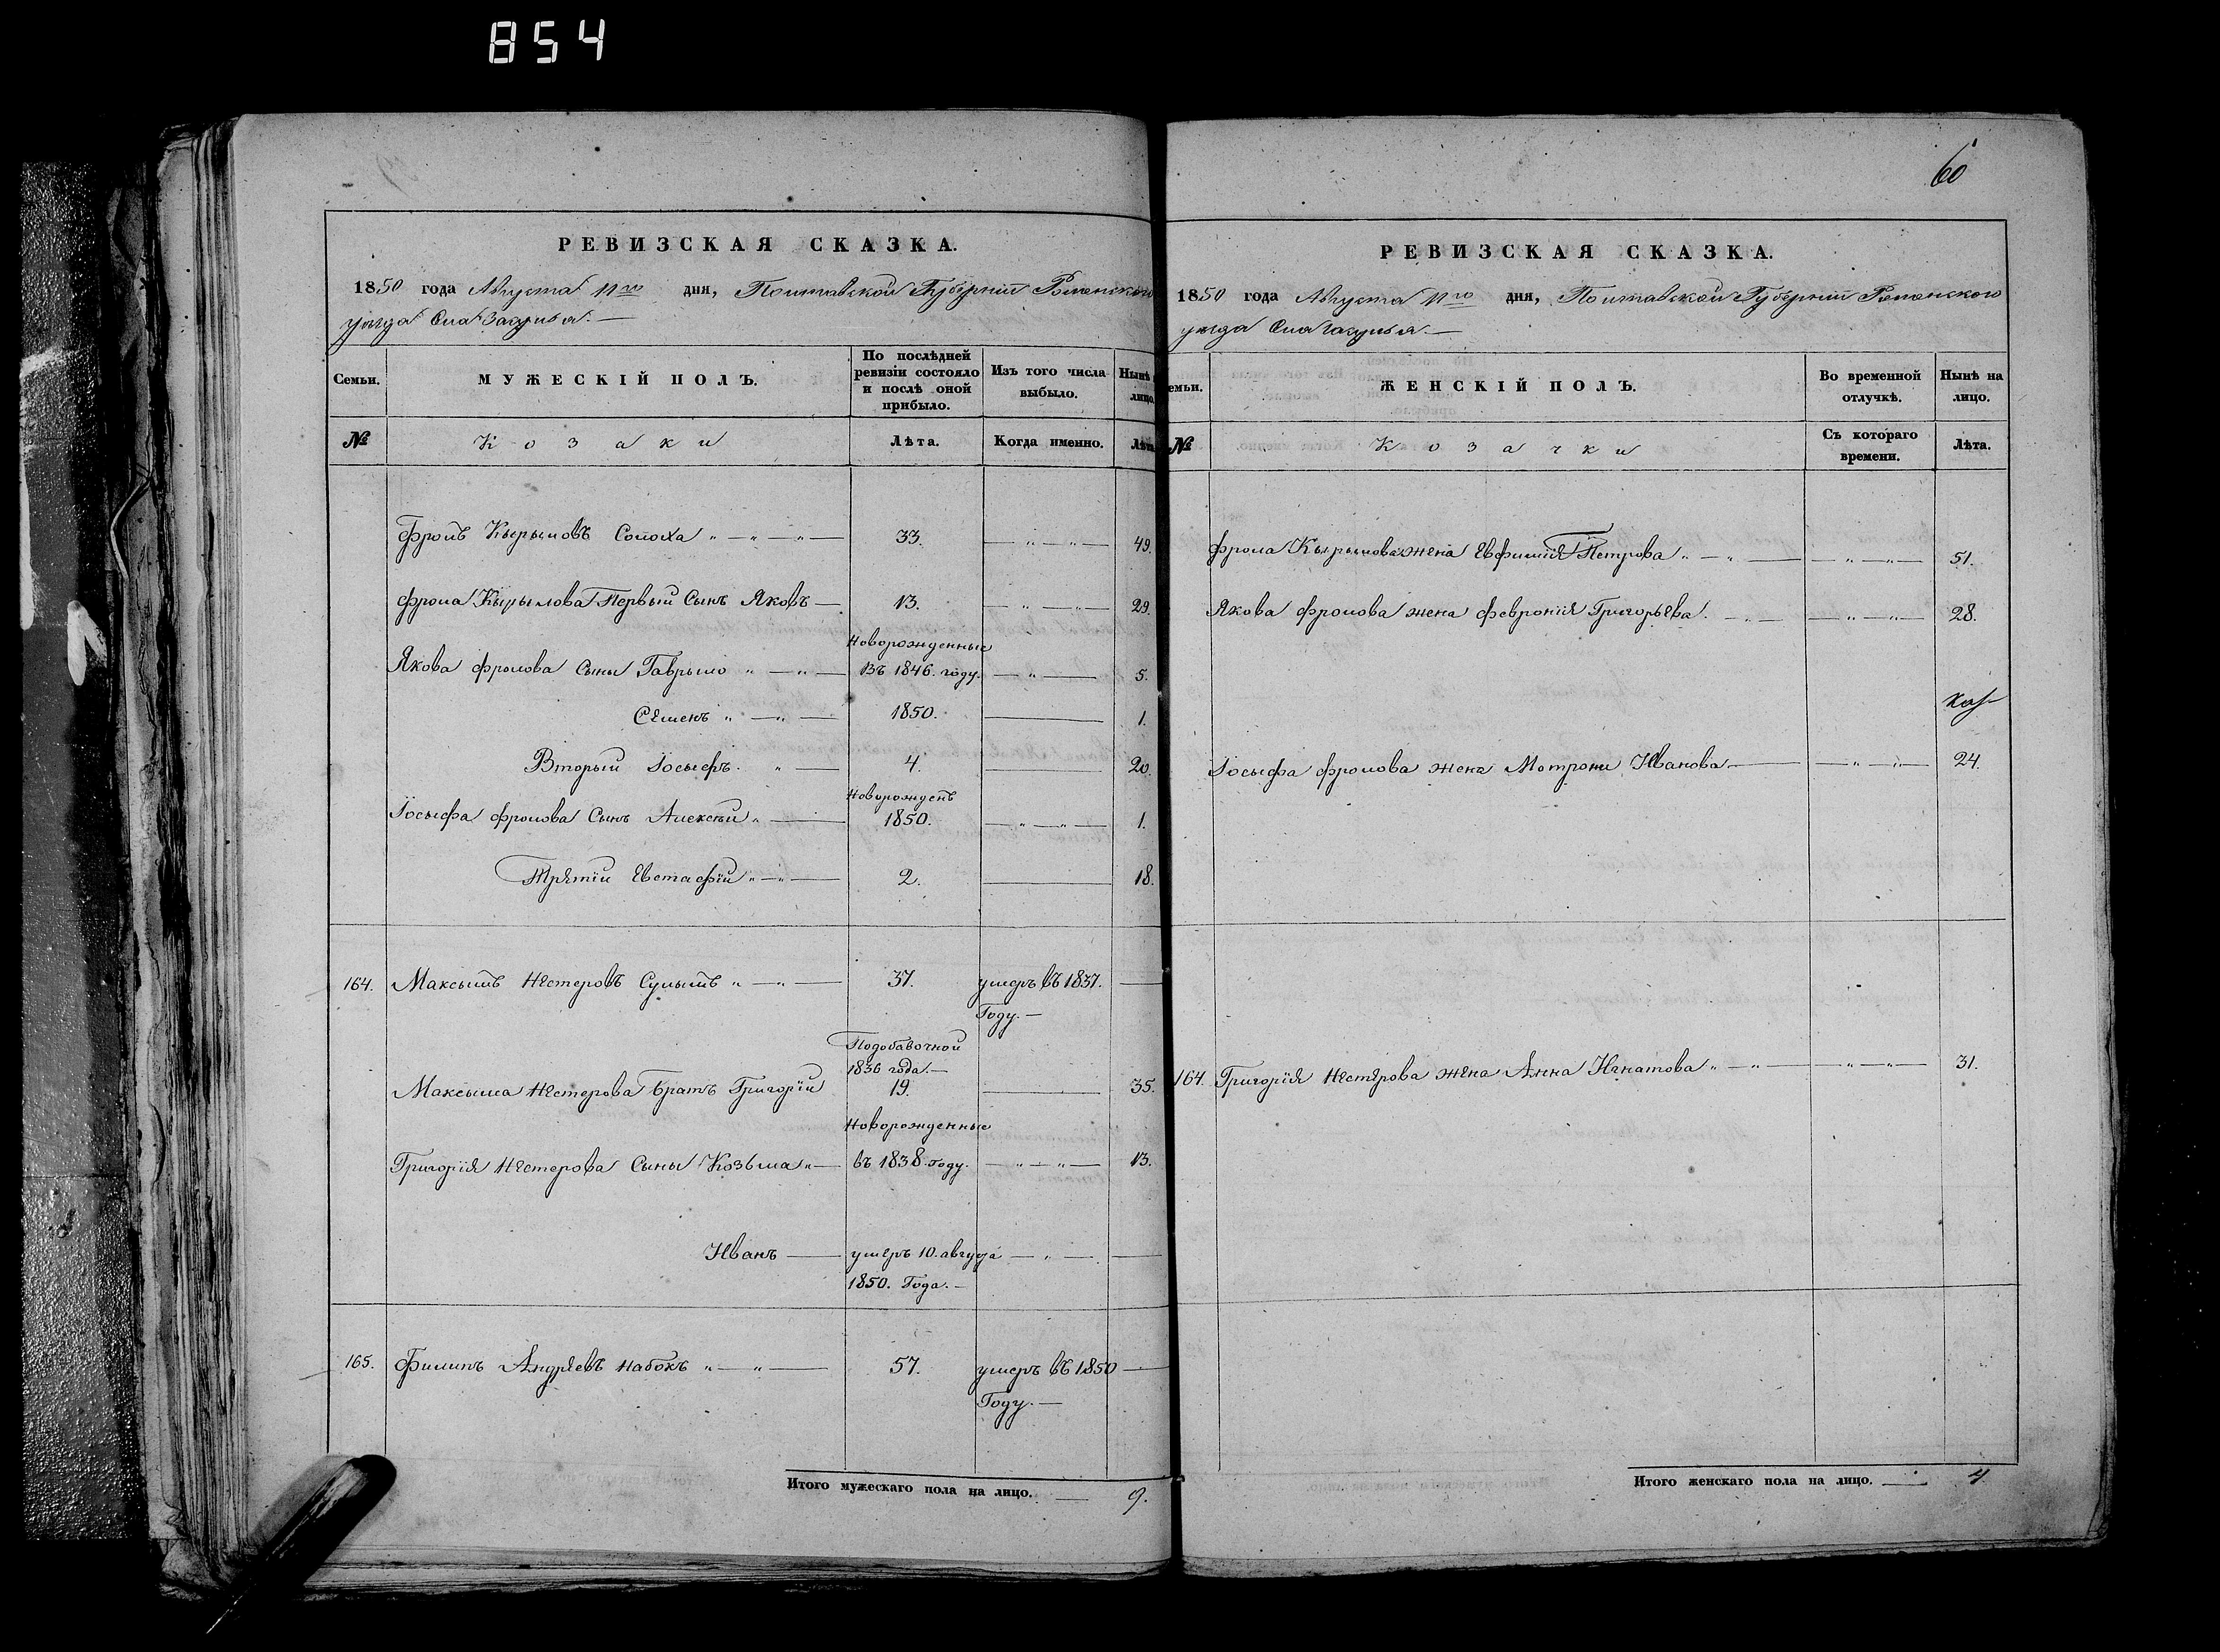 854
60
РЕВИЗСКАЯ СКАЗКА.
1850 года Августа 11го дня, Полтавской Губерніи Роменского
уѣзда Села
Семьи.
МУЖЕСКІЙ ПОЛЪ.
По послѣдней ревизіи состояло и послѣ оной прибыло.
Изъ того числа выбыло.
Нынѣ лицо.
№
Козаки
Лѣта.
Когда именно.
Лѣта
Фролъ Кырыловъ Солоха 33. 49.
Фрола Кырылова Первый Сынъ Яковъ 13. 29.
Новорожденные
Якова Фролова Сыны Гаврыло Въ 1846. году. 5.
Семенъ 1850. 1.
Вторый Іосыфъ. 4. 20.
Новорожденъ
Іосыфа Фролова Сынъ Алексѣй 1850. 1.
Третій Евстафій 2. 18.
164. Максымъ Нестеровъ 37. умеръ въ 1837.
Году.
Подобавочной
1836 года.
Максыма Нестерова братъ Григорій 19. 35.
Новорожденные
Григорія Нестерова Сыны Козьма въ 1838. году. 13.
Иванъ умеръ 10. августа
1850. Года.
165. Филипъ Андреевъ Набокъ 57. умеръ въ 1850
Году.
Итого мужескаго пола на лицо. 9.
РЕВИЗСКАЯ СКАЗКА.
1850 года Августа 11го дня, Полтавской Губерніи Роменского
уѣзда Села
емьи.
ЖЕНСКІЙ ПОЛЪ.
Во временной отлучкѣ.
Нынѣ на лицо.
№
Козачки
Съ котораго времени.
Лѣта.
Фрола Кырылова жена Евфимія Петрова 51.
Якова Фролова жена Февронія Григорьева. 28.
Іосыфа Фролова жена Мотрона Иванова 24.
164. Григорія Нестерова жена Анна Игнатова 31.
Итого женскаго пола на лицо. 4.